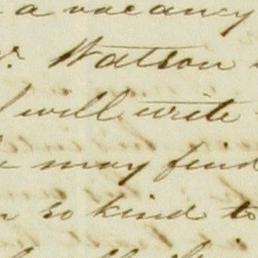 a vacancy
r. Watson
I will write
may find
so kind to